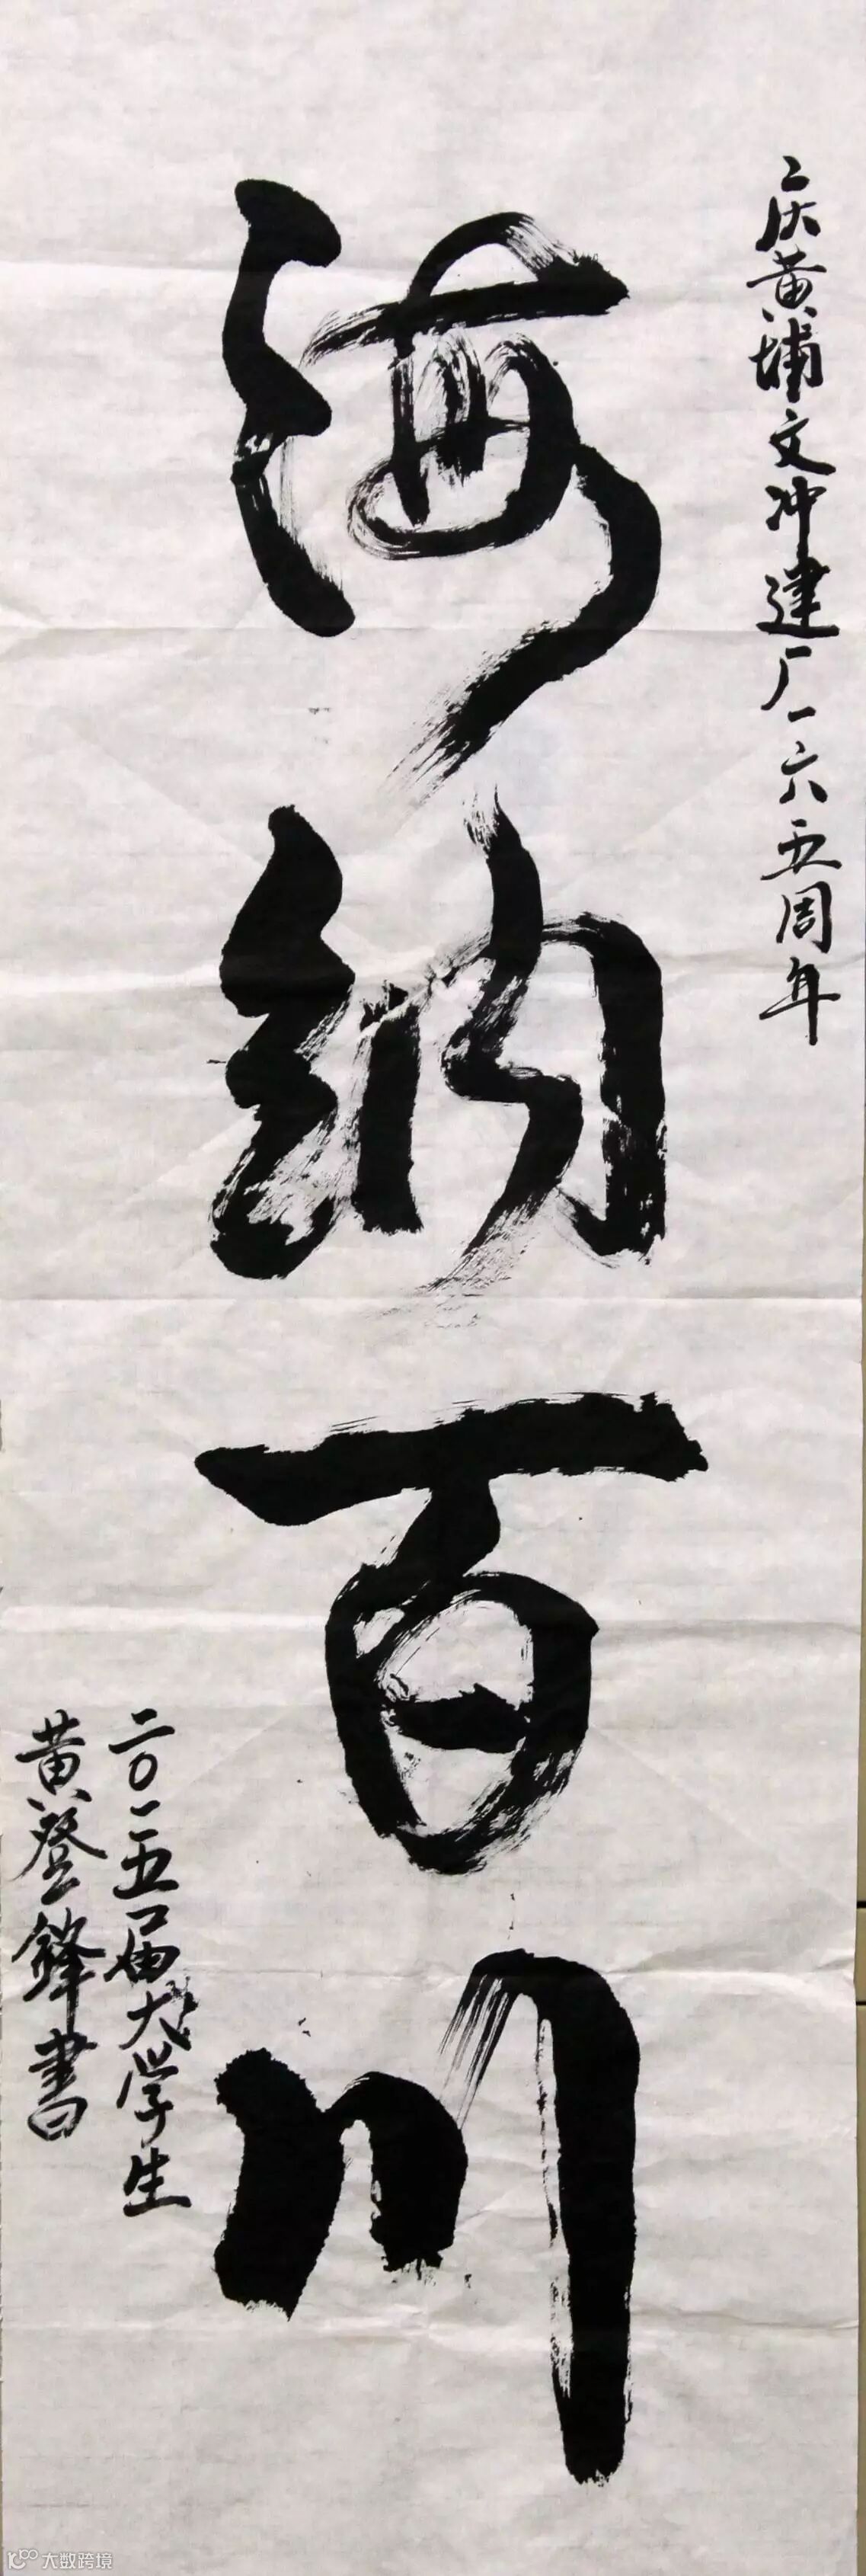 庆黄埔文冲建厂一六五周年
海纳百川
二〇一五届大学生
黄登锋書
大数跨境